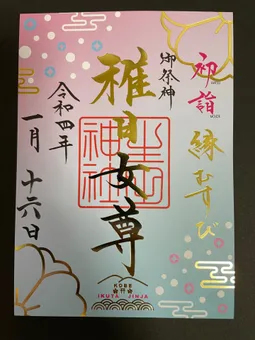 初詣
縁むすび
御祭神
稚日女尊
生田神社
令和四年
一月十六日
KOBE
IKUTA JINJA